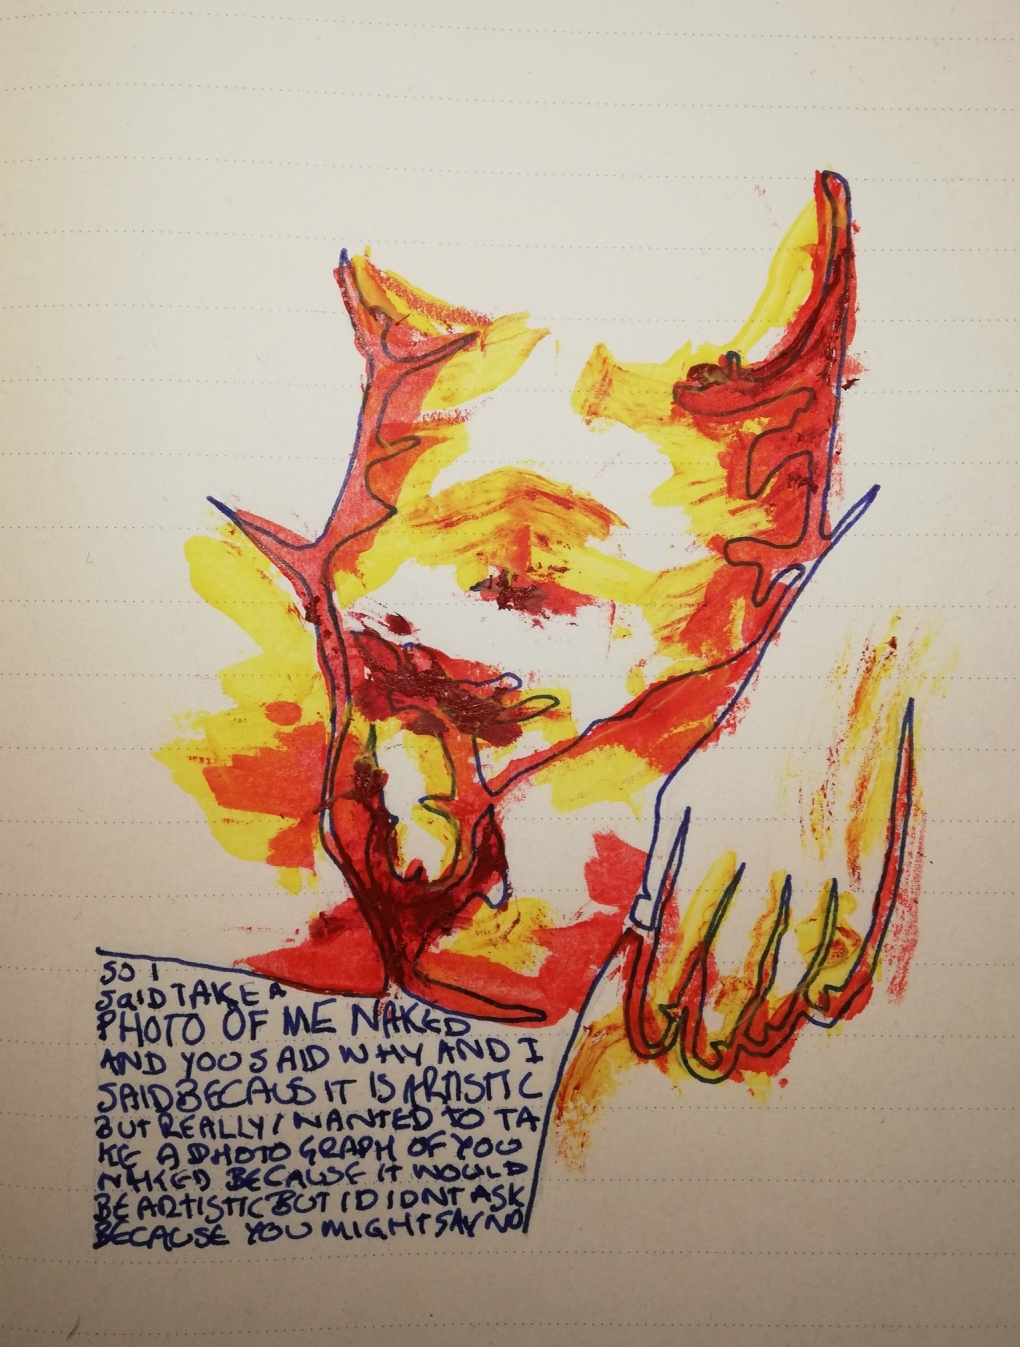 SO I
SaID TAKE A
PHOTO OF ME NAKED
AND YOU SAID WHY AND I
SAID BECAUS IT IS ARTISTIC
BUT REALLY I WANTED TO TA
KE A PHOTO GRAPH OF YOU
NAKED BECAUSE IT WOULD
BE ARTISTIC BUT I DIDNT ASK
BECAUSE YOU MIGHT SAY NO